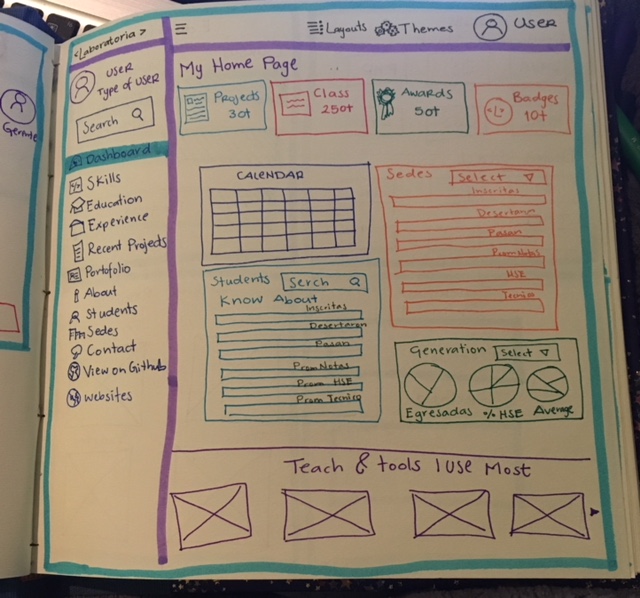 Gerente
<Laboratoria>
User
Type of User
Search
Dashboard
Skills
Education
Experience
Recent Projects
Portofolio
About
Students
Sedes
Contact
View on Github
Websites
Layouts Themes User
My Home Page
Projects
30+
Class
250+
Awards
50+
Badges
10+
CALENDAR
Sedes Select
Inscritas
Desertaron
Pasan
Prom Notas
HSE
Tecnico
Students Serch
Know About
Inscritas
Desertaron
Pasan
Prom Notas
Prom HSE
Prom Tecnico
Generation Select
Egresadas % HSE Average
Teach & tools I use Most